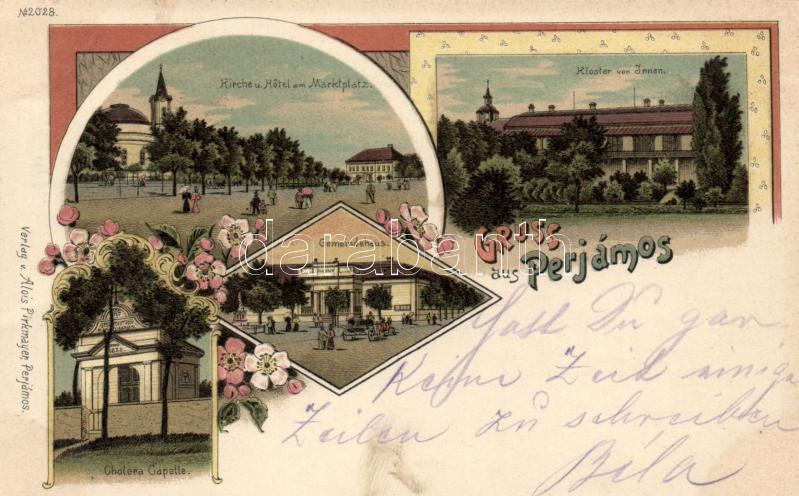 №2028.
Kirche u. Hôtel am Marktplatz.
Kloster von Innen.
Gruss
aus Perjámos
Gemeindehaus.
Cholera Capelle.
Verlag v. Alois Pirkmayer, Perjámos.
Hast Du gar
Keine Zeit einige
Zeilen zu schreiben
Béla
darabanth.com